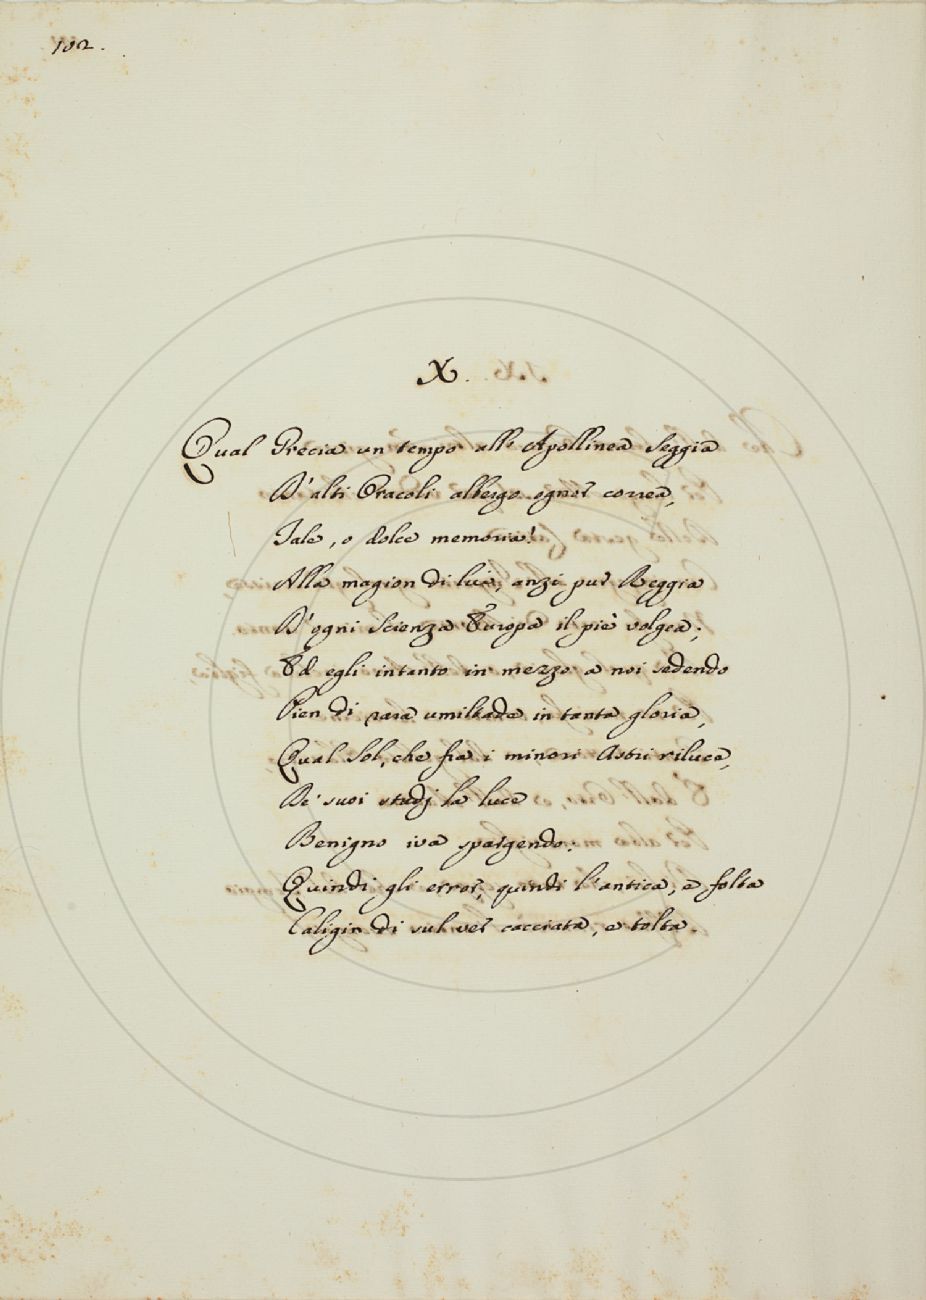 102.
X.
Qual Grecia un tempo all' Apollinea Seggia
D'alti Oracoli albergo ognor correa,
Tale, o dolce memoria!
Alla magion di lui, anzi pur Reggia
D'ogni Scienza Europa il piè volgea;
Ed egli intanto in mezzo a noi sedendo
Pien di rara umiltade in tanta gloria,
Qual Sol, che fra i minori Astri riluca,
De' suoi studj la luce
Benigno iva spargendo:
Quindi gli error, quindi l'antica, e folta
Caligin di sul ver cacciata, e tolta.